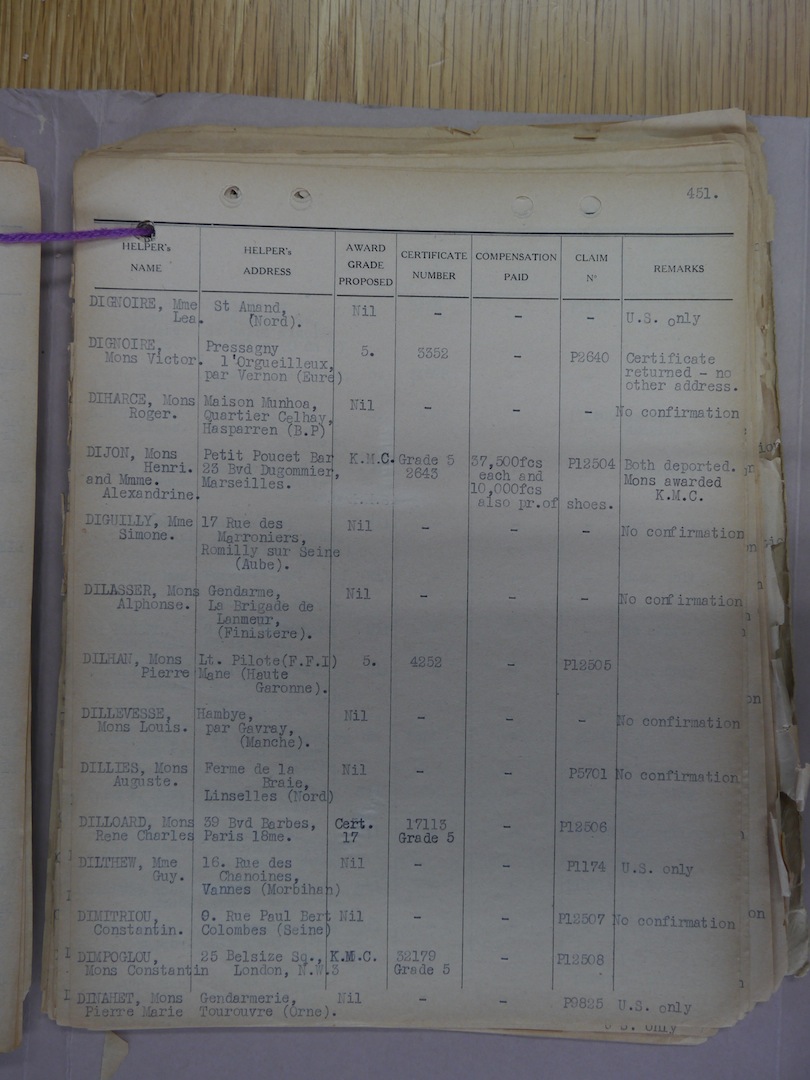 451.
HELPER's NAME HELPER's ADDRESS AWARD GRADE PROPOSED CERTIFICATE NUMBER COMPENSATION PAID CLAIM Nº REMARKS
DIGNOIRE, Mme St Amand, Nil - - - U.S. only
Lea. (Nord).
DIGNOIRE, Pressagny 5. 3352 - P2640 Certificate
Mons Victor. l'Orgueilleux, returned - no
par Vernon (Eure) other address.
DIHARCE, Mons Maison Munhoa, Nil - - - No confirmation
Roger. Quartier Celhay,
Hasparren (B.P)
DIJON, Mons Petit Poucet Bar K.M.C. Grade 5 37,500fcs P12504 Both deported.
Henri. 23 Bvd Dugommier, 2643 each and Mons awarded
and Mmme. Marseilles. 10,000fcs K.M.C.
Alexandrine. also pr.of shoes.
DIGUILLY, Mme 17 Rue des Nil - - - No confirmation
Simone. Marroniers,
Romilly sur Seine
(Aube).
DILASSER, Mons Gendarme, Nil - - - No confirmation
Alphonse. La Brigade de
Lanmeur,
(Finistere).
DILHAN, Mons Lt. Pilote(F.F.I) 5. 4252 - P12505
Pierre Mane (Haute
Garonne).
DILLEVESSE, Hambye, Nil - - - No confirmation
Mons Louis. par Gavray,
(Manche).
DILLIES, Mons Ferme de la Nil - - P5701 No confirmation
Auguste. Braie,
Linselles (Nord)
DILLOARD, Mons 39 Bvd Barbes, Cert. 17113 - P12506
Rene Charles Paris 18me. 17 Grade 5
DILTHEW, Mme 16. Rue des Nil - - P1174 U.S. only
Guy. Chanoines,
Vannes (Morbihan)
DIMITRIOU, Rue Paul Bert Nil - - P12507 No confirmation
Constantin. Colombes (Seine)
DIMPOGLOU, 25 Belsize Sq., K.M.C. 32179 - P12508
Mons Constantin London, N.W.3 Grade 5
DINAHET, Mons Gendarmerie, Nil - - P9825 U.S. only
Pierre Marie Tourouvre (Orne).